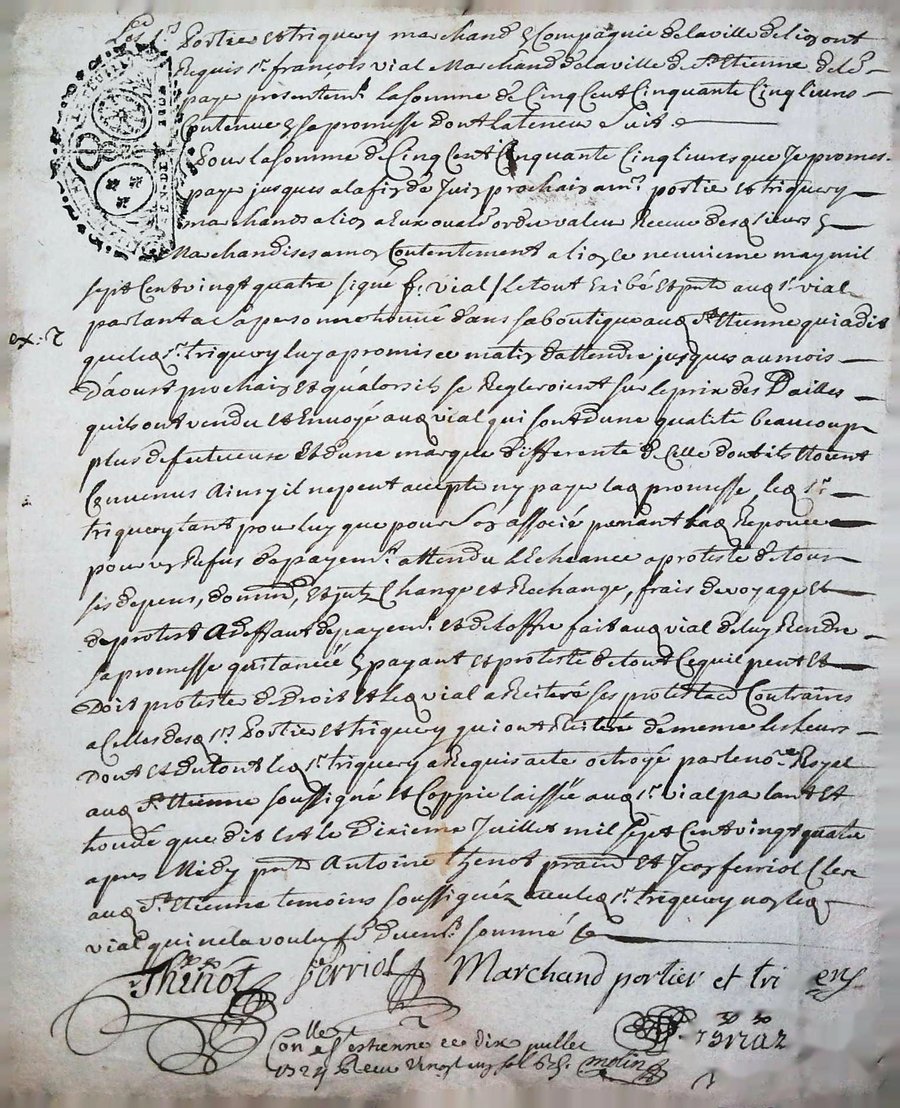 Les Srs Portier et triquery marchand & Compagnie de la ville de lion ont
Requis Sr. françois vial Marchand de la ville de St. Etienne de le
payer presentemt. la somme de Cinq Cent Cinquante Cinq livres
Contenue en sa promesse dont la teneur suit
Pour la somme de Cinq Cent Cinquante Cinq livres que Je promes
payer jusques a la fin de Juin prochain a mrs. portier et triquery
marchands a lion a Eux ou a leur ordre valeur Receue desd sieurs en
Marchandises a mon Contentement a lion le neuvieme may mil
sept Cent vingt quatre signé f. vial / le tout Exibé et pnté aud sr. vial
parlant a sa personne trouvé dans sa boutique aud St. Etienne qui a dit
ex. 7
que led sr. triquery luy a promis ce matin d'attendre jusques au mois
D'aoust prochain et qu'alors ils se Regleroient sur le prix des Dailles
quils ont vendu et Envoyé aud vial qui sont d'une qualité beaucoup
plus defectueuse et d'une marque differente de Celle dont ils Etoient
Convenus Ainsy il ne peut accepter ny payer lad promesse, led sr.
triquery tant pour luy que pour son associé prenant lad Reponce
pour un Refus de payemt. attendu l'Echeance a protesté de tous
ses depens, domm, et Change et Rechange, frais de voyage et
de protest A deffaut de payemt. et de l'offre fait aud vial de luy Rendre
sa promesse quitancée en payant et proteste de tout Ce quil peut et
Doit protester de Droit et led vial a Reiteré ses Contraires
a Celles desd srs Portier et triquery qui ont Reiteré de meme les leurs
Dont et du tout led sr. triquery a Requis acte octroyé par le nore. Royal
aud St. Etienne soussigné et Coppie laissée aud sr. vial parlant et
trouvé que dit est le Dixieme Juillet mil sept Cent vingt quatre
apres Midy pnts Antoine thenot et Jean ferriol Clerc
aud St. Etienne temoins soussignéz avec led sr. triquery non led
vial qui ne la voulu fe. De ce somme
Thenot ferriol Marchand portier et tri
Conlle a St estienne ce dix jullet
1724 Receu molin